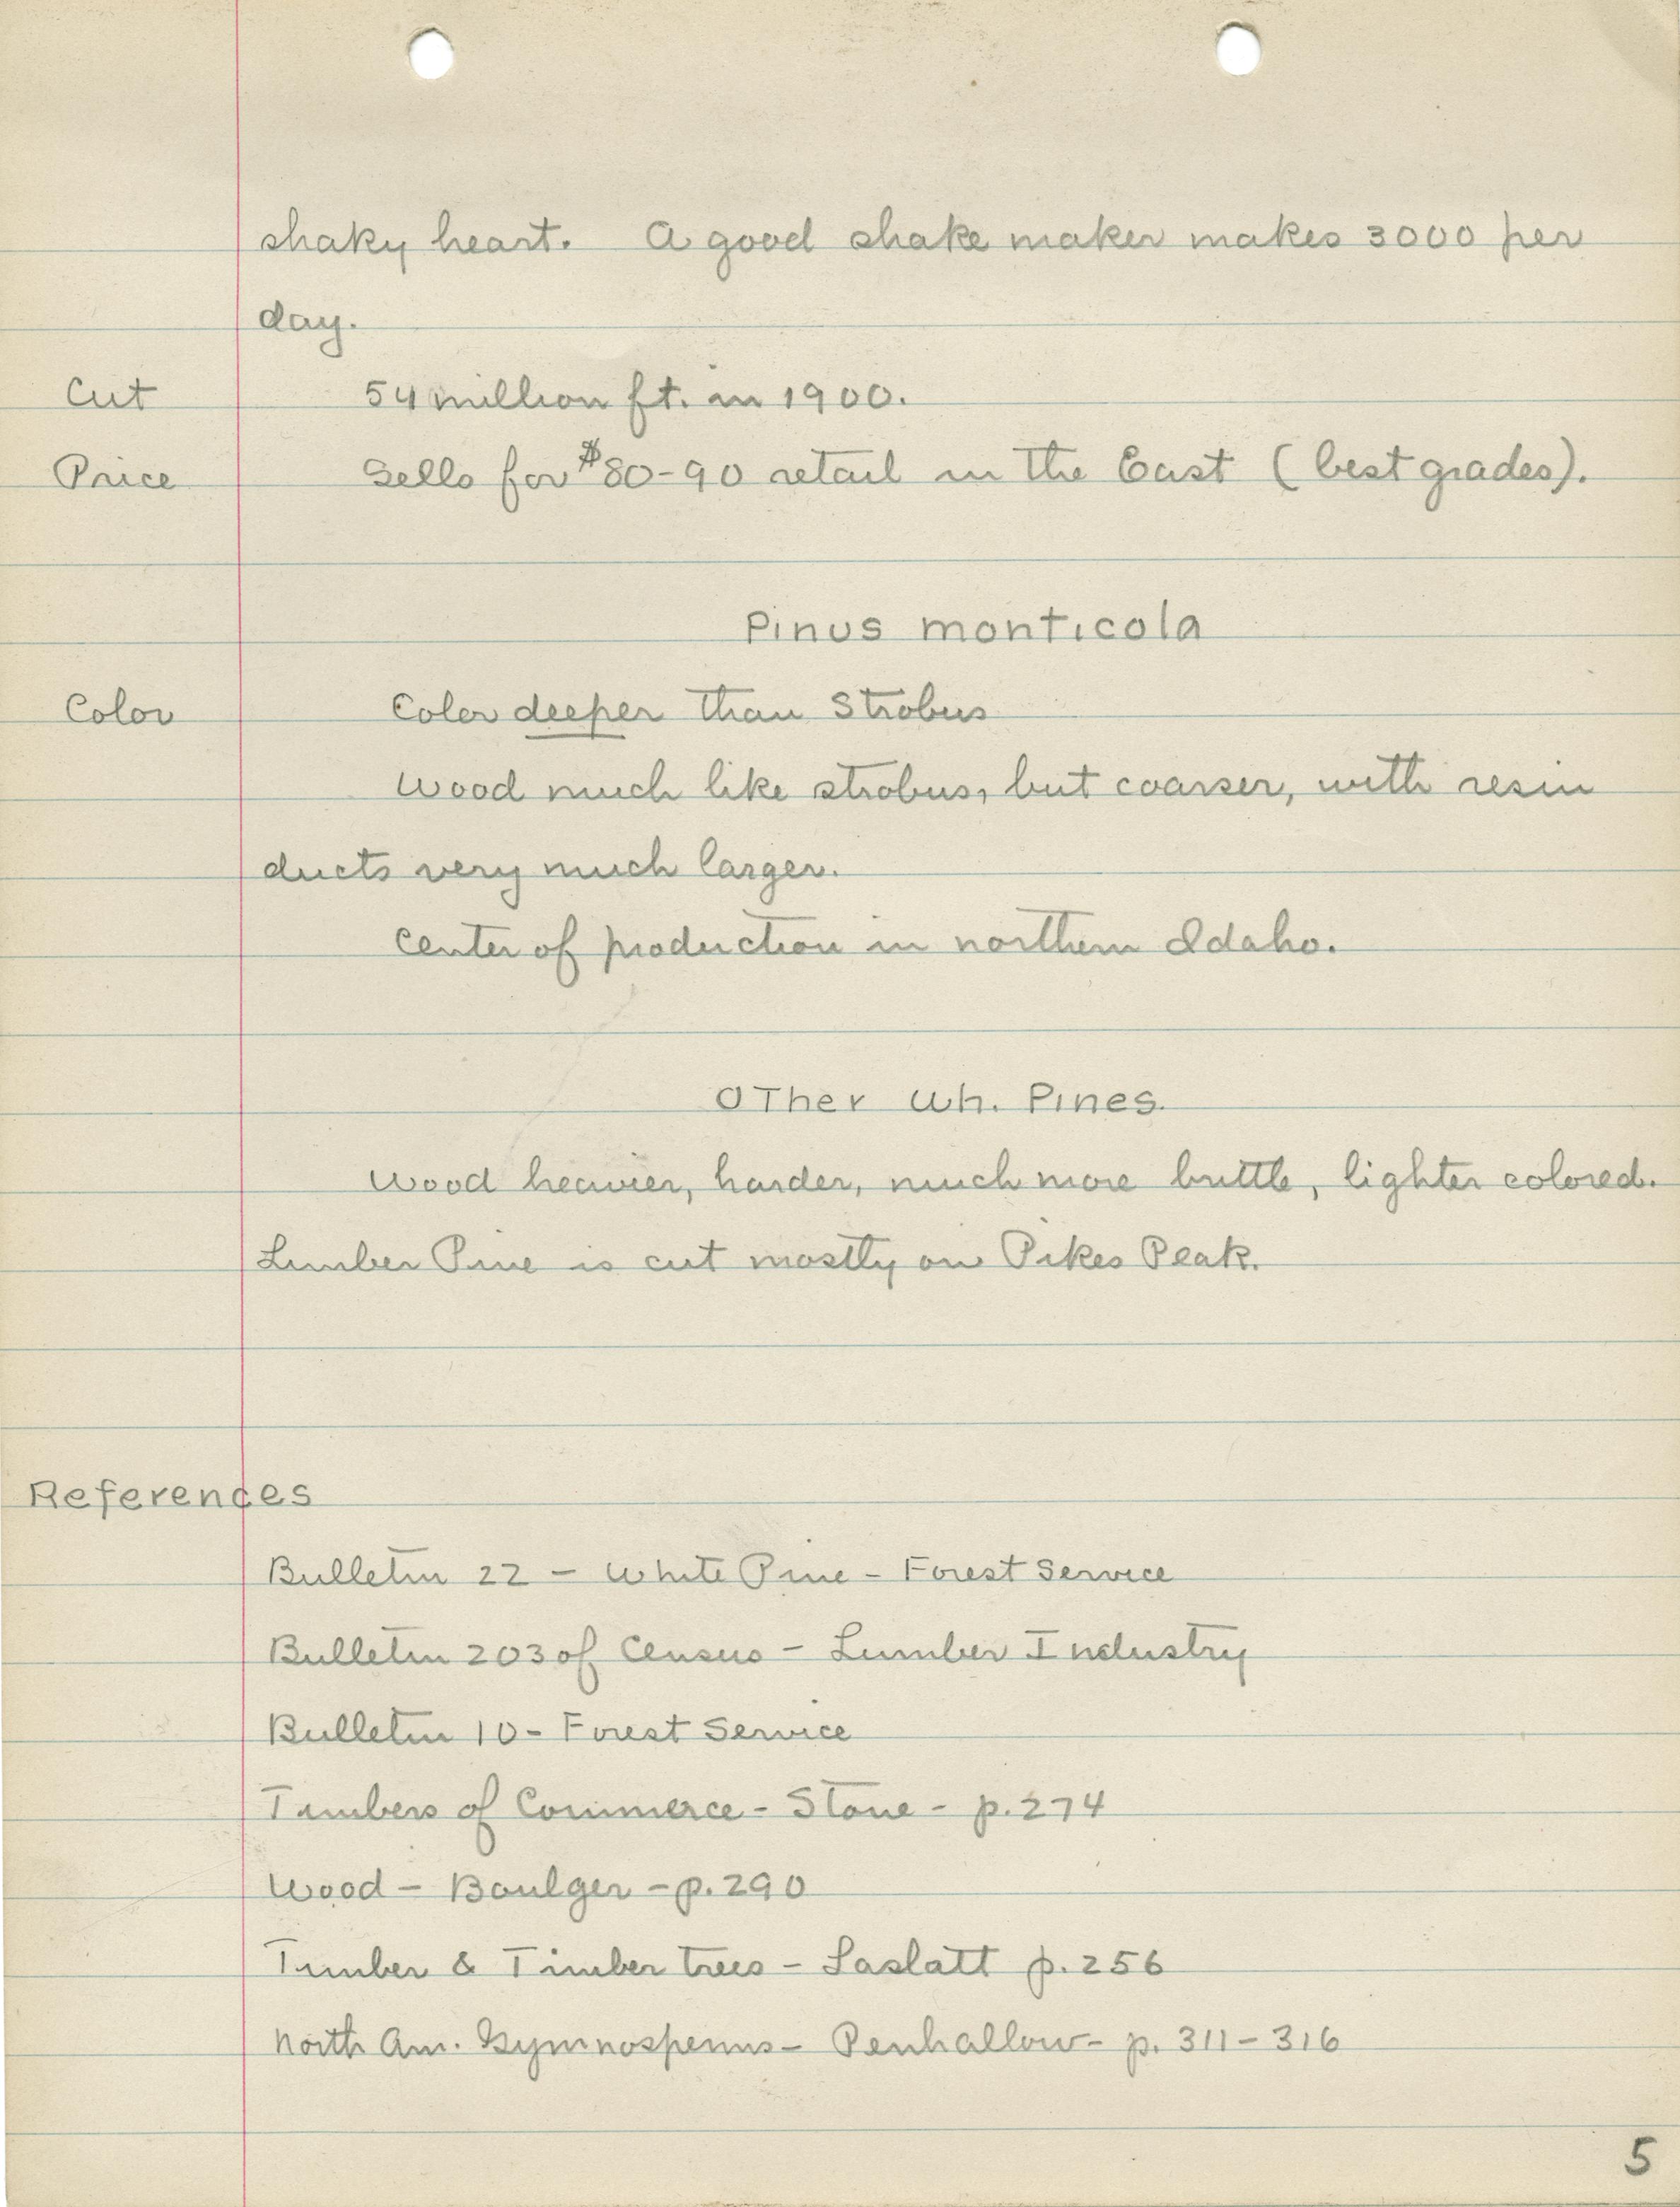 shaky heart. A good shake maker makes 3000 per
day.
Cut 54 million ft. in 1900.
Price Sells for $80-90 retail in the East (best grades).
Pinus monticola
Color Color deeper than Strobus
Wood much like strobus, but coarser, with resin
ducts very much larger.
Center of production in northern Idaho.
Other Wh. Pines.
Wood heavier, harder, much more brittle, lighter colored.
Limber Pine is cut mostly on Pikes Peak.
References
Bulletin 22 - White Pine - Forest Service
Bulletin 203 of Census - Lumber Industry
Bulletin 10 - Forest Service
Timbers of Commerce - Stone - p. 274
Wood - Boulger - p. 290
Timber & Timber trees - Laslatt p. 256
North Am. Gymnosperms - Penhallow - p. 311-316
5